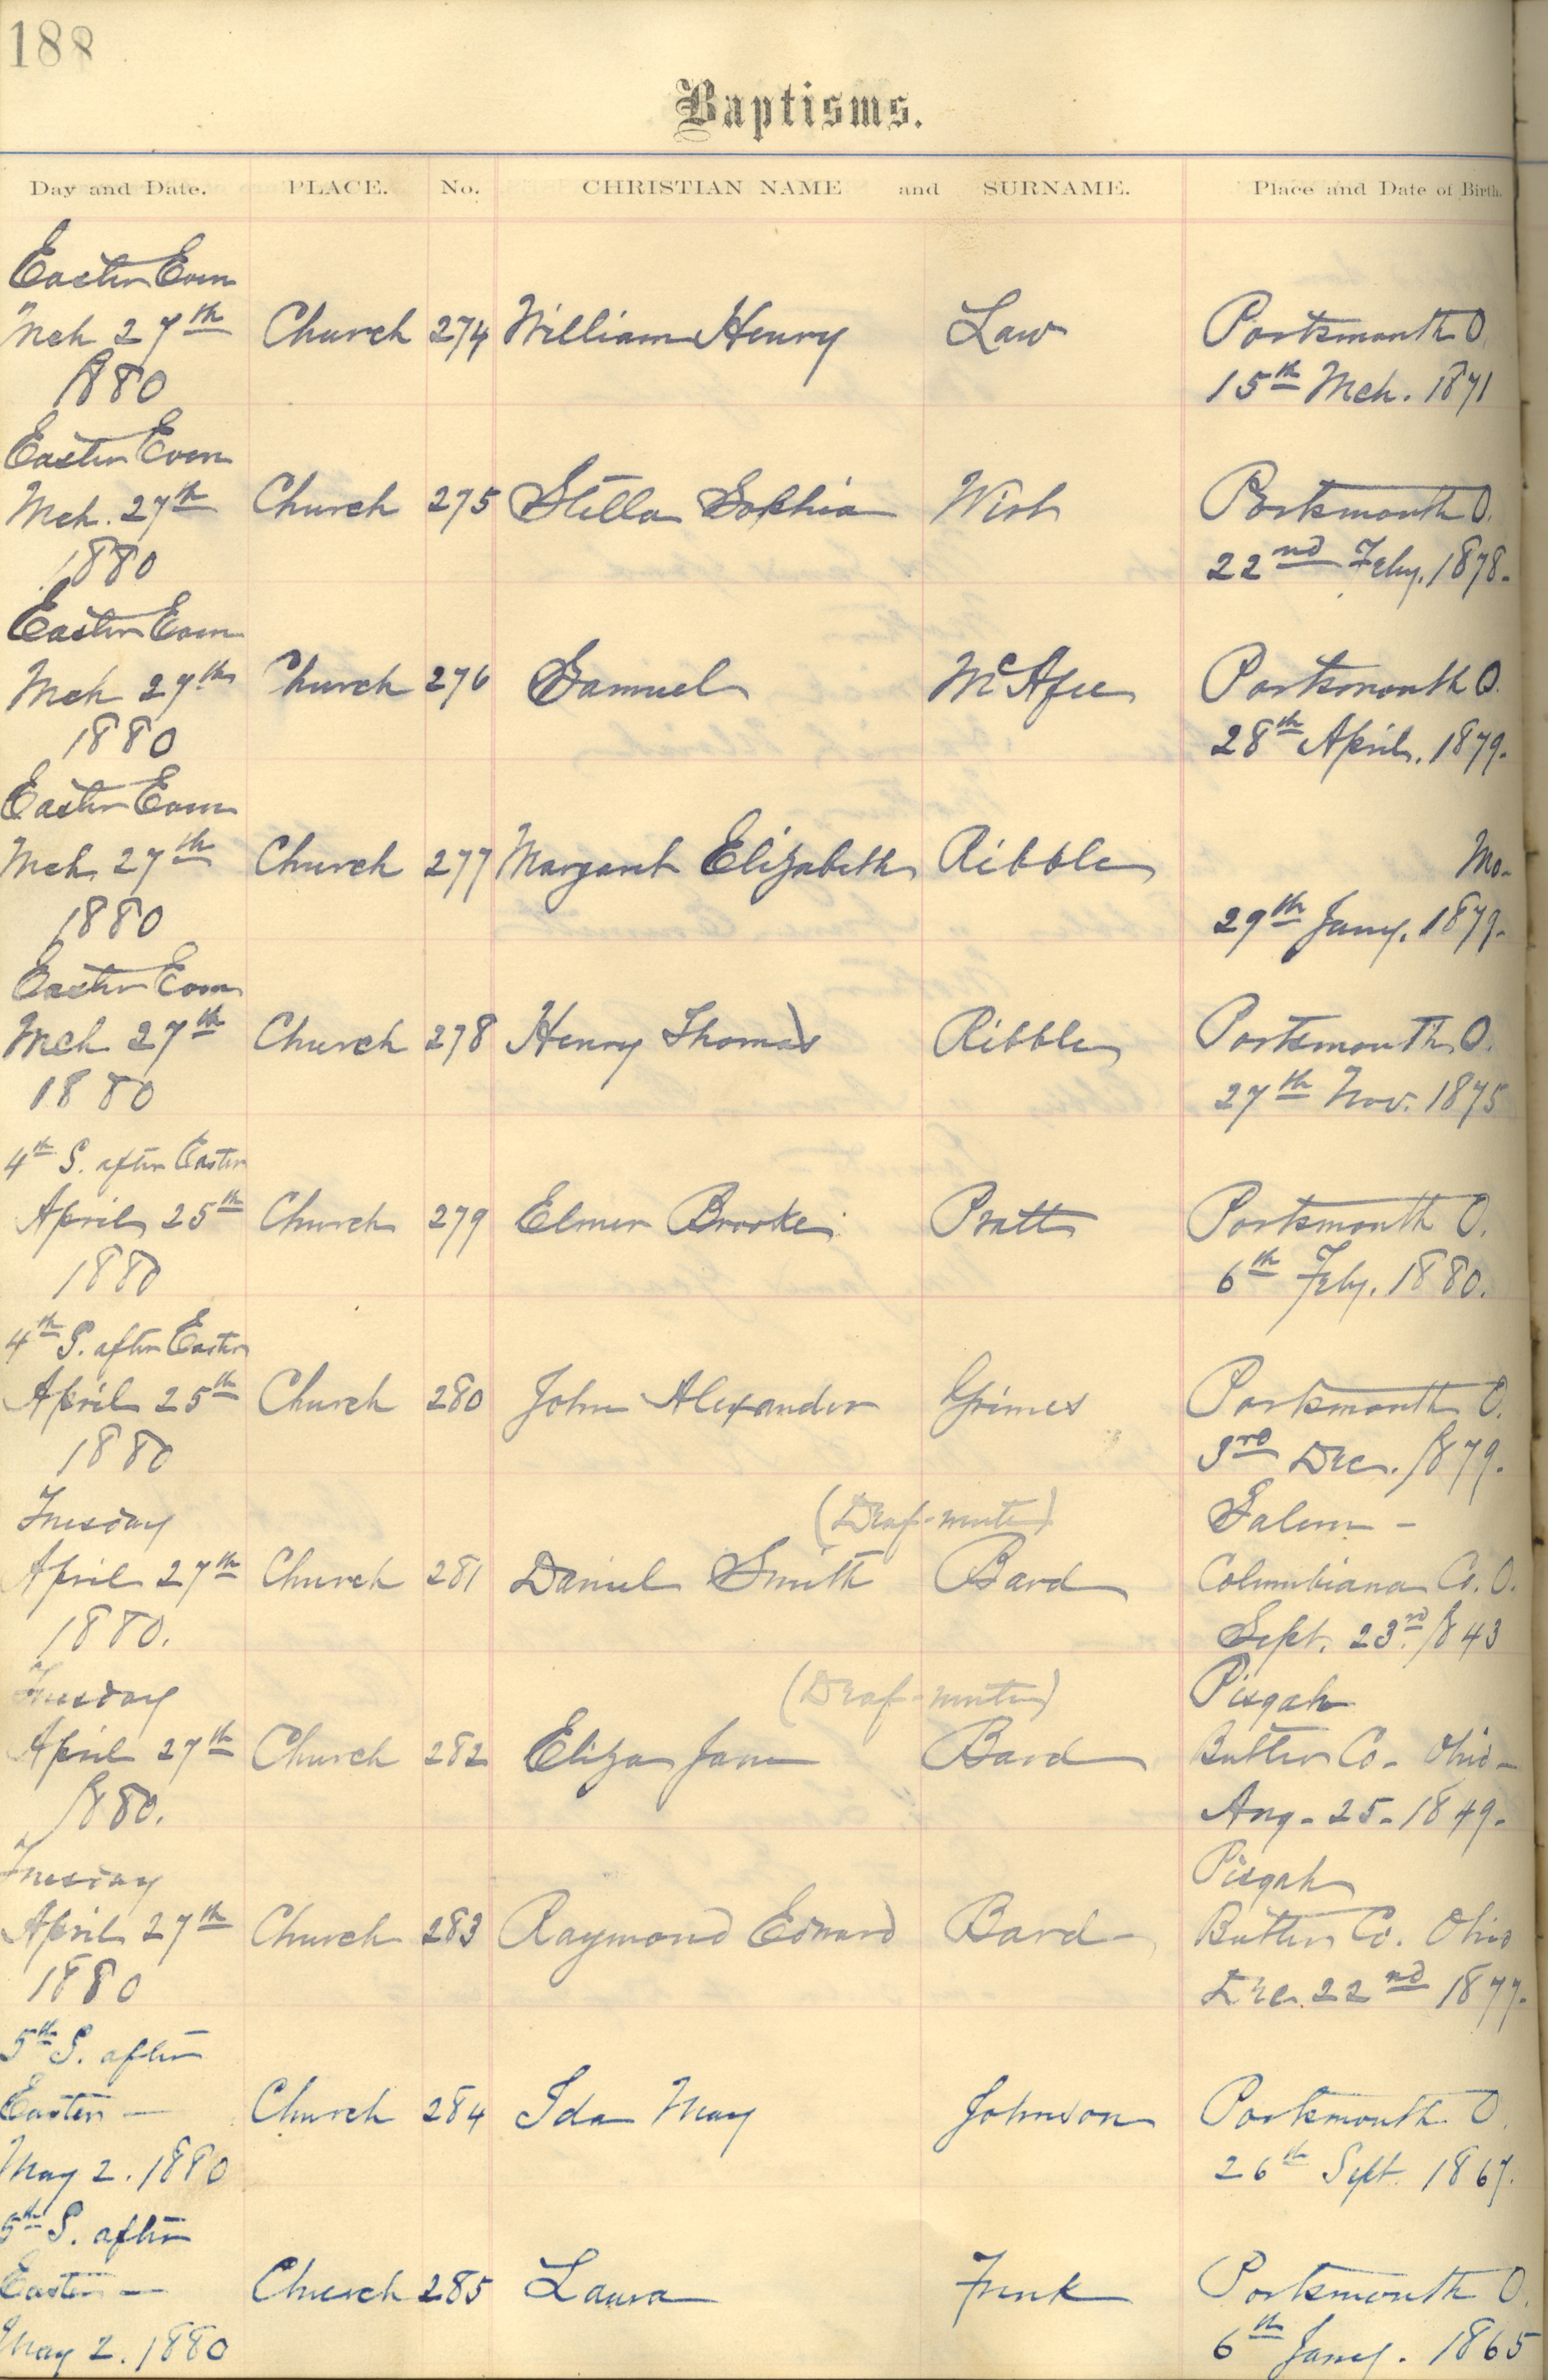 188
Baptisms.
Day and Date. PLACE. No. CHRISTIAN NAME and SURNAME. Place and Date of Birth.
Easter Even
Mch 27th Church 274 William Henry Law Portsmouth O.
1880 15th Mch. 1871
Easter Even
Mch. 27th Church 275 Stella Sophia Portsmouth O.
1880 22nd Feby. 1878.
Easter Even
Mch 27th Church 276 Samuel McAfee Portsmouth O.
1880 28th April. 1879.
Easter Even
Mch. 27th Church 277 Margaret Elizabeth Ribble Mo.
1880 29th Jany. 1879.
Easter Even
Mch 27th Church 278 Henry Thomas Ribble Portsmouth O.
1880 27th Nov. 1875
4th S. after Easter
April 25th Church 279 Elmer Brooke Pratt Portsmouth O.
1880 6th Feby. 1880.
4th S. after Easter
April 25th Church 280 John Alexander Grimes Portsmouth O.
1880 3rd Dec. 1879.
Tuesday (Deaf-mute) Salem -
April 27th Church 281 Daniel Smith Bard Columbiana Co. O.
1880. Sept. 23rd 1843
Tuesday (Deaf-mute) Pisgah
April 27th Church 282 Eliza Jane Bard Butler Co - Ohio -
1880. Aug - 25 - 1849 -
Tuesday Pisgah
April 27th Church 283 Raymond Edward Bard Butler Co. Ohio
1880 Dec. 22nd 1877.
5th S. after
Easter — Church 284 Ida May Johnson Portsmouth O.
May 2. 1880 26th Sept. 1867.
5th S. after
Easter — Church 285 Laura Funk Portsmouth O.
May 2. 1880 6th Jany. 1865